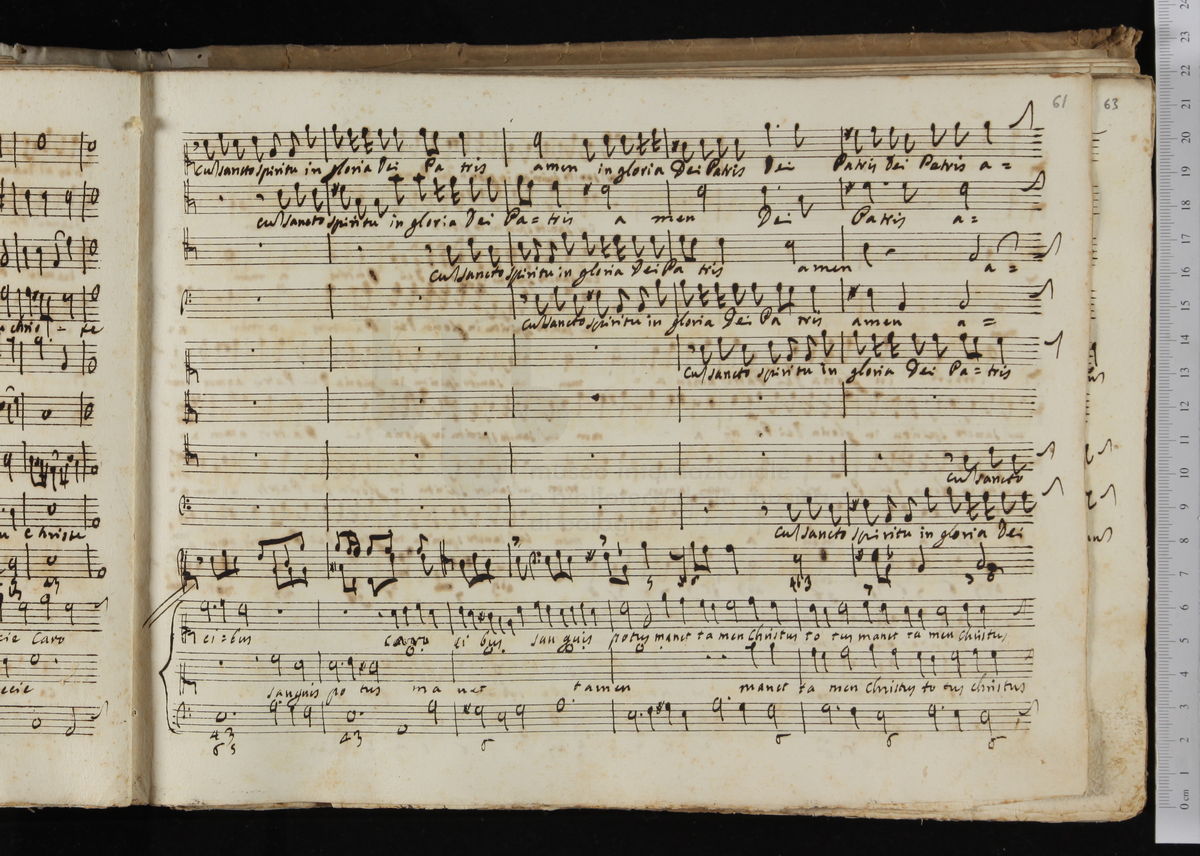 61
63
cu[m] sancto spiritu in gloria Dei Pa tris amen in gloria Dei Patris Dei Patris Dei Patris a=
cu[m] sancto spiritu in gloria Dei Pa=tris a men Dei Patris a=
cu[m] sancto spiritu in gloria Dei Pa tris amen a=
cu[m] sancto spiritu in gloria Dei Pa tris amen a=
cu[m] sancto spiritu in gloria Dei Pa=tris
cu[m] sancto
cu[m] sancto spiritu in gloria Dei
4 3
ci=bus caro ci bus sanguis potus manet ta men Christus to tus manet ta men Christus
sanguis po tus ma net tamen manet ta men Christus to tus christus
4 3
6 5
4 3
6
6
6
6
christe
cie Caro
ecie